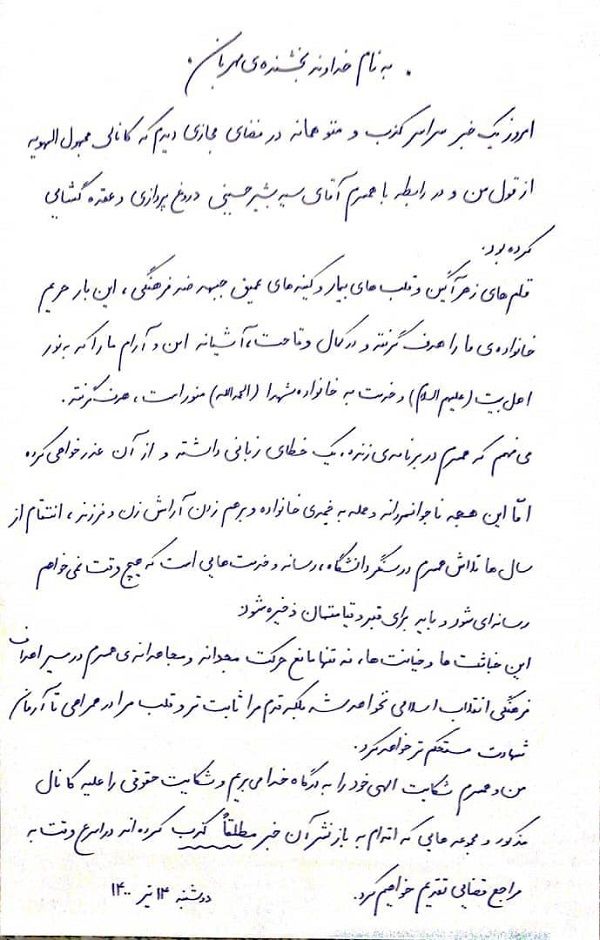 . به نام خداوند بخشنده‌ی مهربان .
امروز یک خبر سراسر کذب و متوهمانه در فضای مجازی دیدم که کانالی مجهول الهویه
از قول من و در رابطه با همسرم آقای سید بشیر حسینی دروغ پردازی و عقده گشایی
کرده بود.
قلم‌های زهرآگین و قلب‌های بیمار و کینه‌های عمیق جبهه ضد فرهنگی، این بار حریم
خانواده‌ی ما را هدف گرفته و در کمال وقاحت، آشیانه امن و آرام ما را که به نور
اهل بیت (علیهم السلام) و خدمت به خانواده شهدا (الحمدالله) منور است، هدف گرفته.
می‌فهمم که همسرم در برنامه‌ی زنده، یک خطای زبانی داشته و از آن عذرخواهی کرده
امّا این هجمه ناجوانمردانه و حمله به خیمه‌ی خانواده و برهم زدن آرامش زن و فرزند، انتقام از
سال ها تلاش همسرم در سنگر دانشگاه، رسانه و خدمت‌هایی است که هیچ وقت نمی‌خواهم
رسانه‌ای شود و باید برای قبر و قیامتمان ذخیره شود.
این خباثت ها و خیانت ها، نه تنها مانع حرکت مجدانه و مجاهدانه‌ی همسرم در مسیر اهداف
فرهنگی انقلاب اسلامی نخواهد شد بلکه قدم مرا ثابت تر و قلب مرا در همراهی تا آرمان
شهادت مستحکم تر خواهد کرد.
من و همسرم شکایت الهی خود را به درگاه خدا می‌بریم و شکایت حقوقی را علیه کانال
مذکور و مجموعه هایی که اقدام به بازنشر آن خبر مطلقاً کذب کرده اند در اسرع وقت به
مراجع قضایی تقدیم خواهیم کرد.
دوشنبه ۱۴ تیر ۱۴۰۰